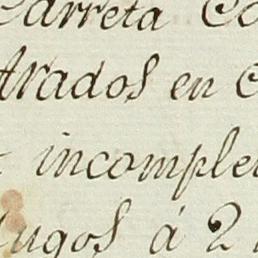 Carreta Co
trados en C
incomple
Yugos á 2